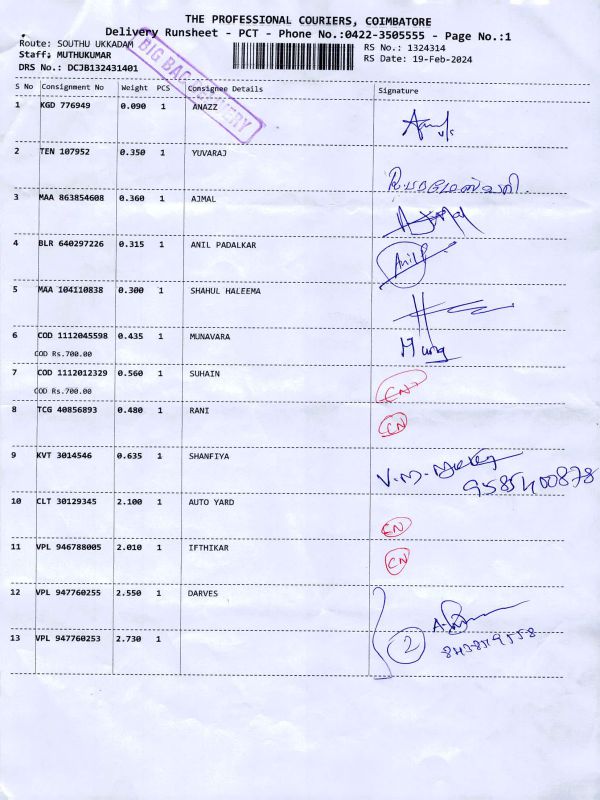 THE PROFESSIONAL COURIERS, COIMBATORE
Delivery Runsheet - PCT - Phone No.:0422-3505555 - Page No.:1
Route: SOUTHU UKKADAM
RS No.: 1324314
Staff: MUTHUKUMAR
RS Date: 19-Feb-2024
DRS No.: DCJB132431401
BIG BAG DELIVERY
S No Consignment No Weight PCS Consignee Details Signature
1 KGD 776949 0.090 1 ANAZZ
2 TEN 107952 0.350 1 YUVARAJ
3 MAA 863854608 0.360 1 AJMAL
4 BLR 640297226 0.315 1 ANIL PADALKAR Anil
5 MAA 104110838 0.300 1 SHAHUL HALEEMA
6 COD 1112045598 0.435 1 MUNAVARA
COD Rs.700.00
7 COD 1112012329 0.560 1 SUHAIN CN
COD Rs.700.00
8 TCG 40856893 0.480 1 RANI CN
9 KVT 3014546 0.635 1 SHANFIYA
9585400878
10 CLT 30129345 2.100 1 AUTO YARD CN
11 VPL 946788005 2.010 1 IFTHIKAR CN
12 VPL 947760255 2.550 1 DARVES
13 VPL 947760253 2.730 1 2